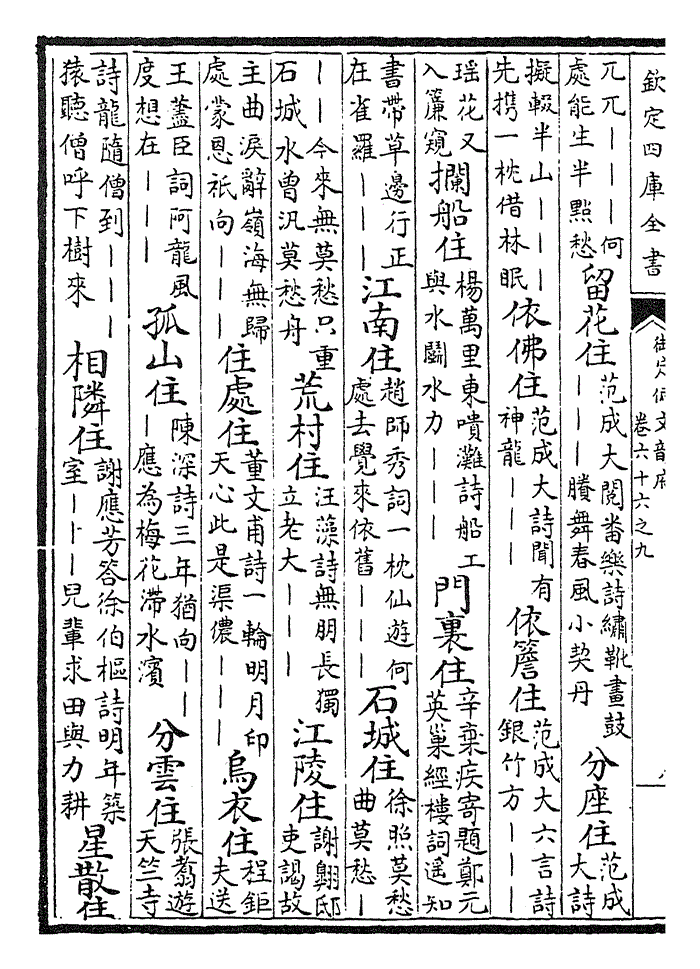 欽定四庫全書
御定佩文韻府
卷六十六之九
八
兀兀｜｜｜何
處能生半點愁
留花住
范成大閱番樂詩繡靴畫鼓
｜｜｜賸舞春風小契丹
分座住
范成
大詩
擬輟半山｜｜｜
先携一枕借林眠
依佛住
范成大詩聞有
神龍｜｜｜
依簷住
范成大六言詩
銀竹方｜｜｜
瑶花又
入簾窺
攔船住
楊萬里東嘖灘詩船工
與水鬬水力｜｜｜
門裏住
辛棄疾寄題鄭元
英巢經樓詞遥知
書帶草邊行正
在雀羅｜｜｜
江南住
趙師秀詞一枕仙遊何
處去覺來依舊｜｜｜
石城住
徐照莫愁
曲莫愁｜
｜｜今來無莫愁只重
石城水曾汎莫愁舟
荒村住
汪藻詩無朋長獨
立老大｜｜｜
江陵住
謝翺邸
吏謁故
主曲淚辭嶺海無歸
處蒙恩祇向｜｜｜
住處住
董文甫詩一輪明月印
天心此是渠儂｜｜｜
烏衣住
程鉅
夫送
王蓋臣詞阿龍風
度想在｜｜｜
孤山住
陳深詩三年猶向｜｜
｜應為梅花滯水濱
分雲住
張翥遊
天竺寺
詩龍隨僧到｜｜｜
猿聽僧呼下樹來
相隣住
謝應芳答徐伯樞詩明年築
室｜｜｜兒輩求田與力耕
星散住